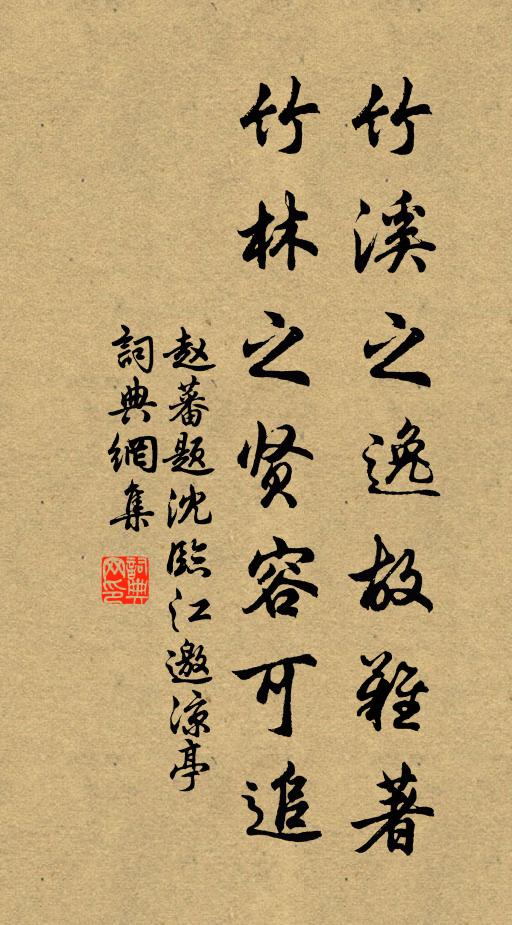 竹溪之逸故难著
竹林之贤容可追
赵蕃题沈临江邀凉亭
詞典網集
詞典网印